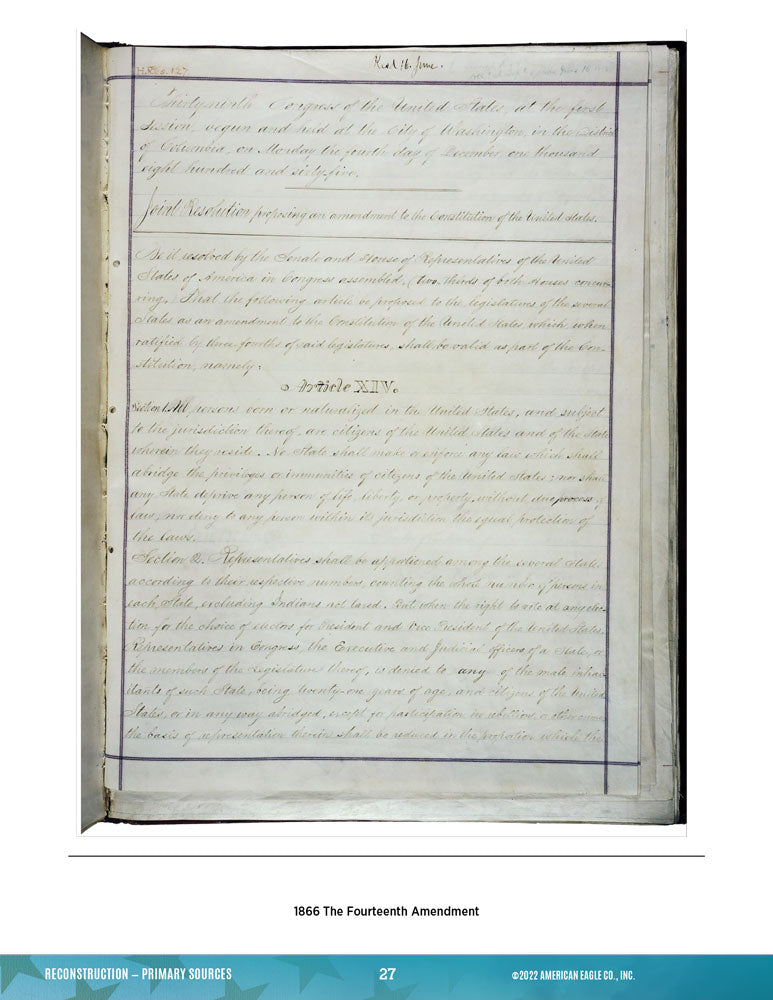 H.Res.127.
Rec'd 16 June.
Thirty-ninth Congress of the United States, at the first
Session, begun and held at the City of Washington, in the District
of Columbia, on Monday the fourth day of December one thousand
eight hundred and sixty-five.
Joint Resolution proposing an amendment to the Constitution of the United States.
Be it resolved by the Senate and House of Representatives of the United
States of America in Congress assembled, (two-thirds of both Houses concur-
ring,) That the following article be proposed to the legislatures of the several
States as an amendment to the Constitution of the United States, which, when
ratified by three-fourths of said legislatures, shall be valid as part of the Con-
stitution, namely:
Article XIV.
Section 1. All persons born or naturalized in the United States, and subject
to the jurisdiction thereof, are citizens of the United States and of the State
wherein they reside. No State shall make or enforce any law which shall
abridge the privileges or immunities of citizens of the United States; nor shall
any State deprive any person of life, liberty, or property, without due process of
law, nor deny to any person within its jurisdiction the equal protection of
the laws.
Section 2. Representatives shall be apportioned among the several States
according to their respective numbers, counting the whole number of persons in
each State, excluding Indians not taxed. But when the right to vote at any elec-
tion for the choice of electors for President and Vice President of the United States,
Representatives in Congress, the Executive and Judicial officers of a State, or
the members of the Legislature thereof, is denied to any of the male inhab-
itants of such State, being twenty-one years of age, and citizens of the United
States, or in any way abridged, except for participation in rebellion, or other crime,
the basis of representation therein shall be reduced in the proportion which the
1866 The Fourteenth Amendment
RECONSTRUCTION – PRIMARY SOURCES
27
©2022 AMERICAN EAGLE CO., INC.